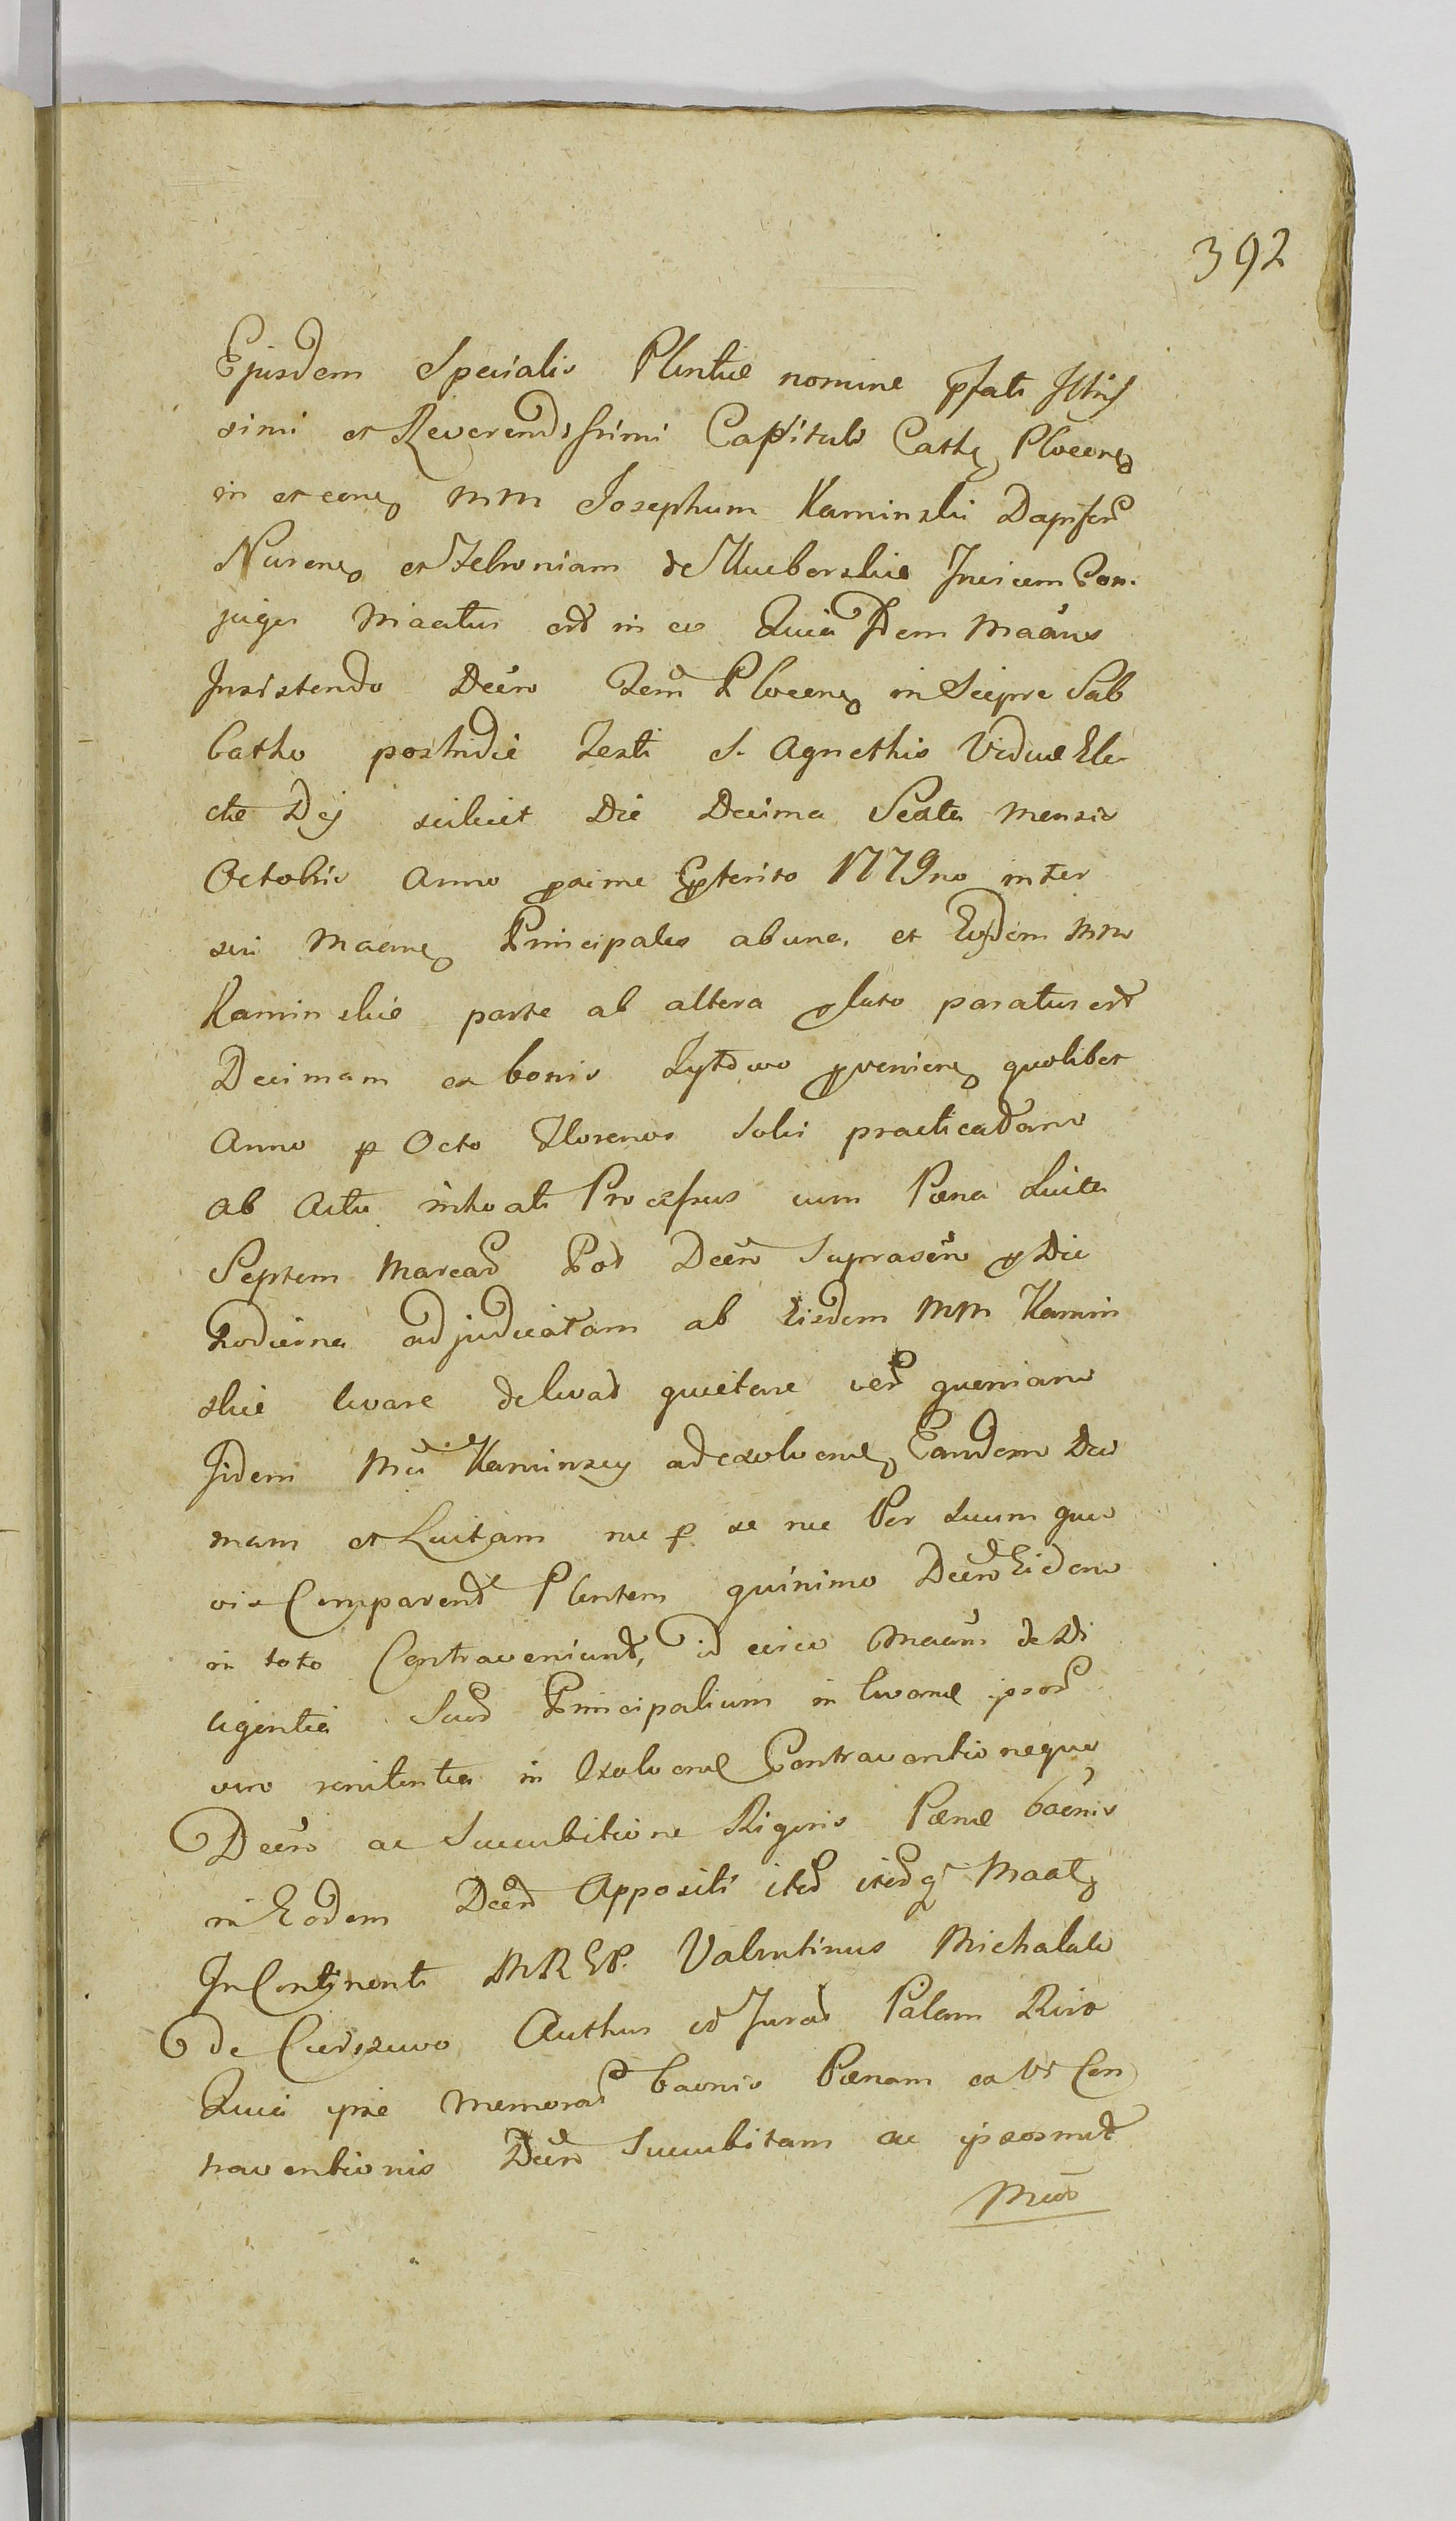 392
Ejusdem Specialis Plentiæ nomine pfati Illris
simi et Reverendissimi Capituli Cathę Plocenę
in et conę MM Josephum Kaminski Dapifer
Nurenę et Febroniam de Kuiborskie Invicem Con-
juges Mactus est in eo Quia Idem Macans
Insistendo Decro Terri Plocenę in Sieprc Sab
batho postridie Festi S. Agnethis Viduæ Ele
ctæ Dej scilicet Die Decima Sexta Mensis
Octobris Anno pxime Epterito 1779no inter
sui Macanę Principales ab una, et Eosdem MM
Kaminskie parte ab altera plato paratus est
Decimam ex bonis Zytowo pvenienę quolibet
Anno p Octo Florenos Solvi practicatam
ab Actu inhoati Processus cum Pæna Luita
Septem Marcar Pol Decro Suprascrip p Die
hodierna adjudicatam ab Eisdem MM Kamin
skie levare de levad quietare ver quoniam
Iidem Mci Kaminscy ad exolvendę Eandem Deci
mam et Luitam nec p se nec Per Suum quem
vis Comparend Plentem quinimo Decro Eidem
in toto Contraveniunt, id circo Macans de Di
ligentia Suor Principalium in levandæ ipsor
vero renitentia in Exolvendæ Contraventioneque
Decro ac Succubitione Rigoris Pænæ banis
in Eodem Decro Appositi iter iterq Maatę
In Continenti MREP. Valentinus Michalak
de Cierszewo Authus id Jurad Palam Rvit
Quia ipse Memorat baonis Pænam ex Vi Con
traventionis Decro Succubitam ac ipsosmet
MM